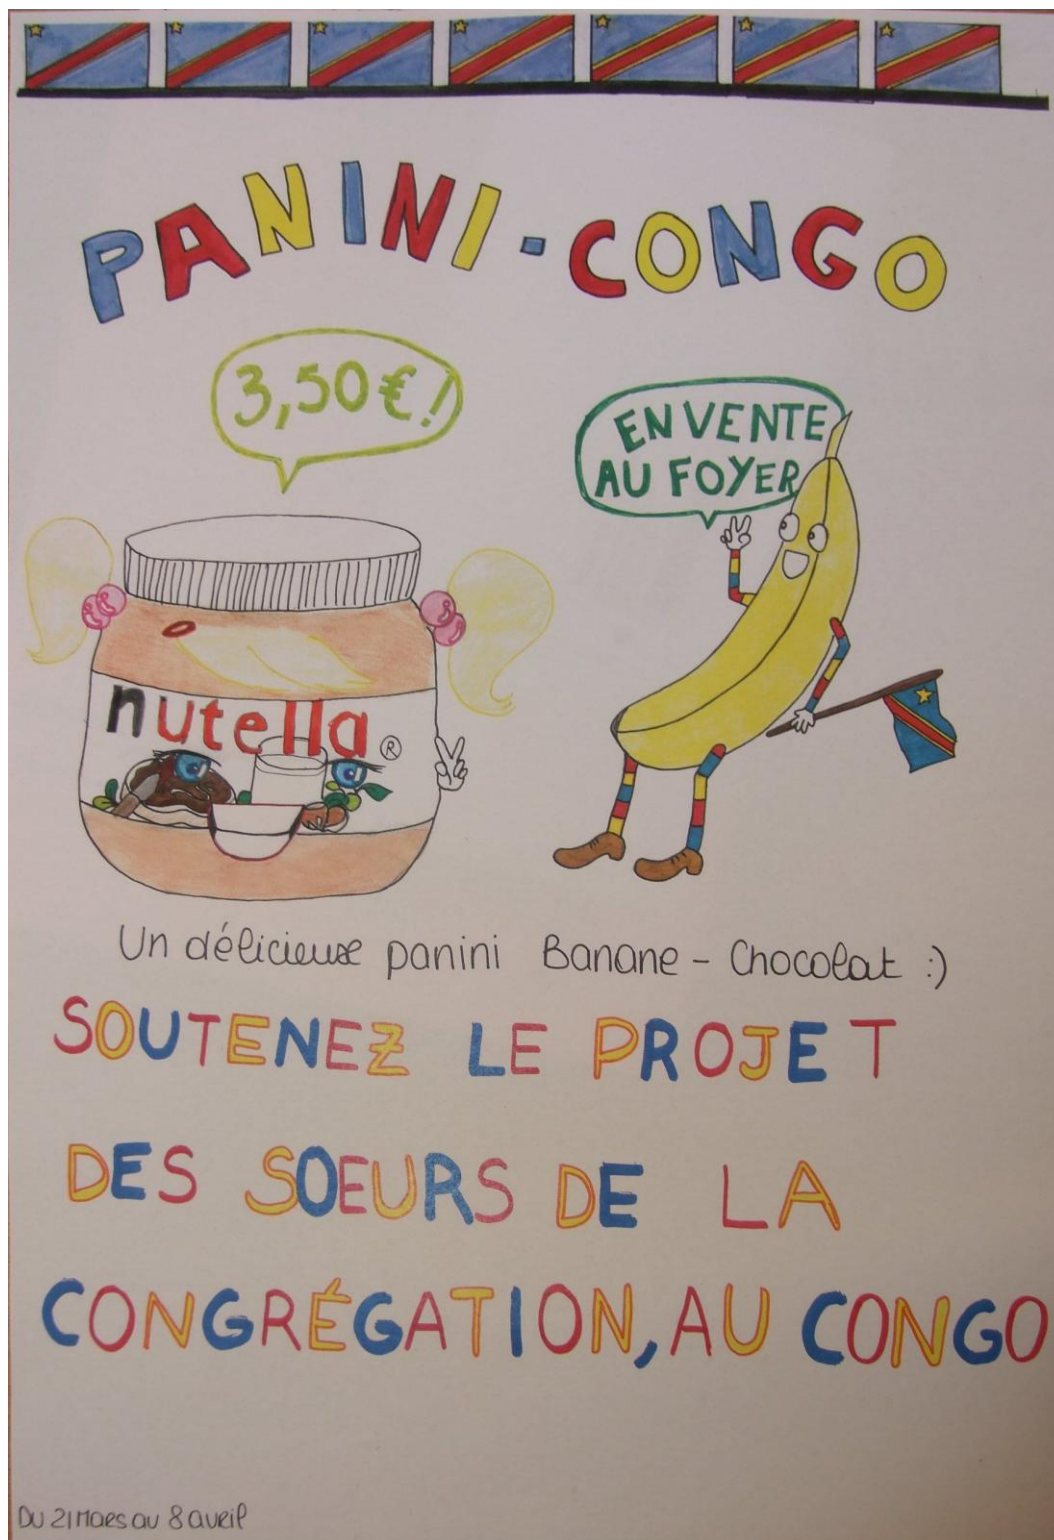 PANINI - CONGO
3,50 € !
EN VENTE
AU FOYER
nutella ®
Un délicieux panini Banane - Chocolat :)
SOUTENEZ LE PROJET
DES SOEURS DE LA
CONGRÉGATION, AU CONGO
DU 21 Mars au 8 avril